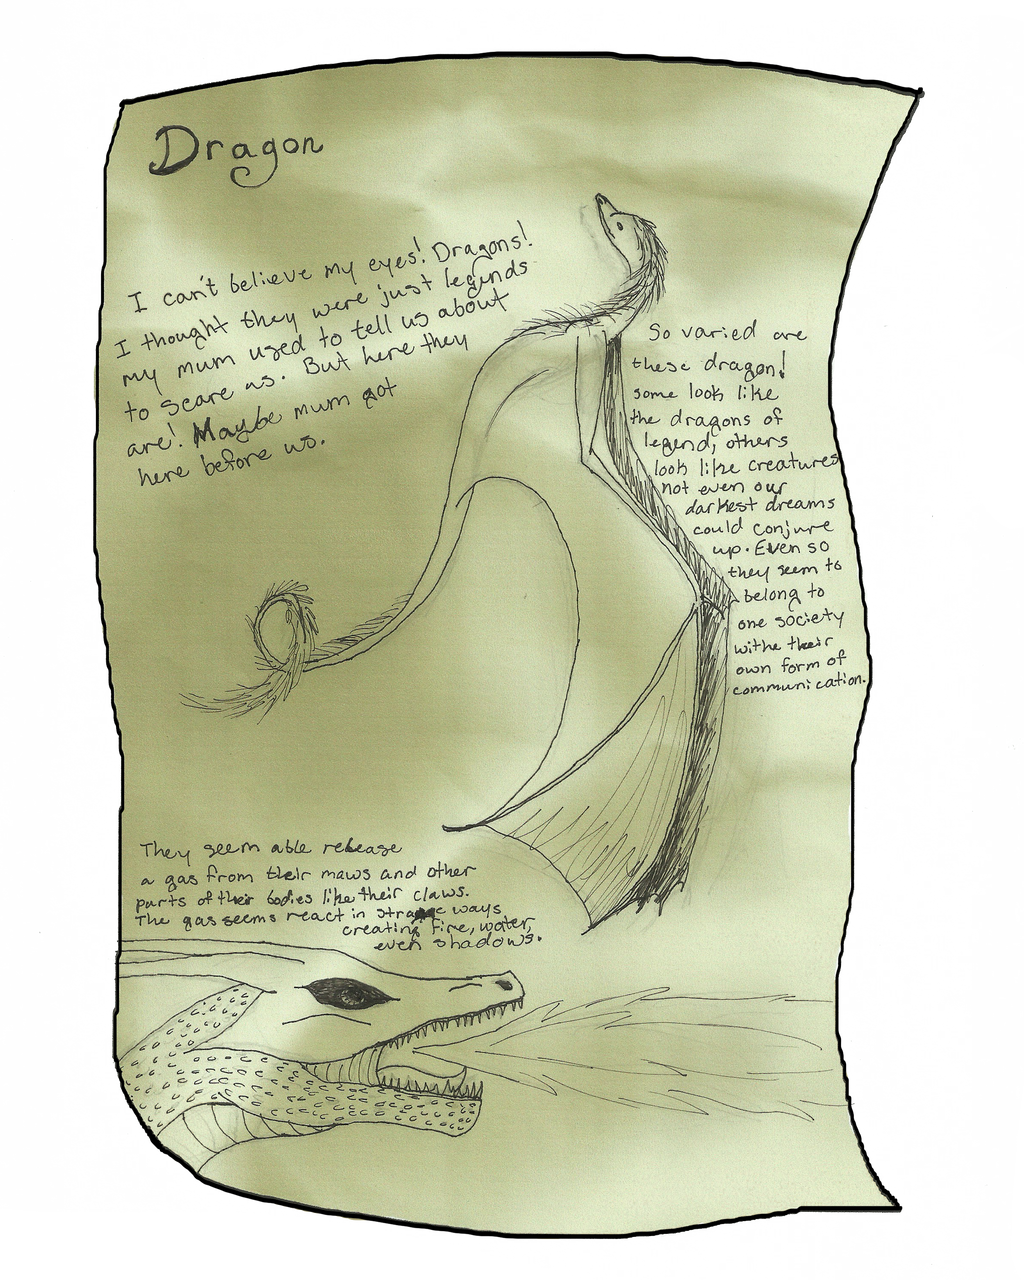 Dragon
I can't believe my eyes! Dragons!
I thought they were just legends
my mum used to tell us about
to scare us. But here they
are! Maybe mum got
here before us.
So varied are
these dragon!
some look like
the dragons of
legend, others
look like creatures
not even our
darkest dreams
could conjure
up. Even so
they seem to
belong to
one society
withe their
own form of
communication.
They seem able release
a gas from their maws and other
parts of their bodies like their claws.
The gas seems react in strange ways
creating fire, water,
even shadows.